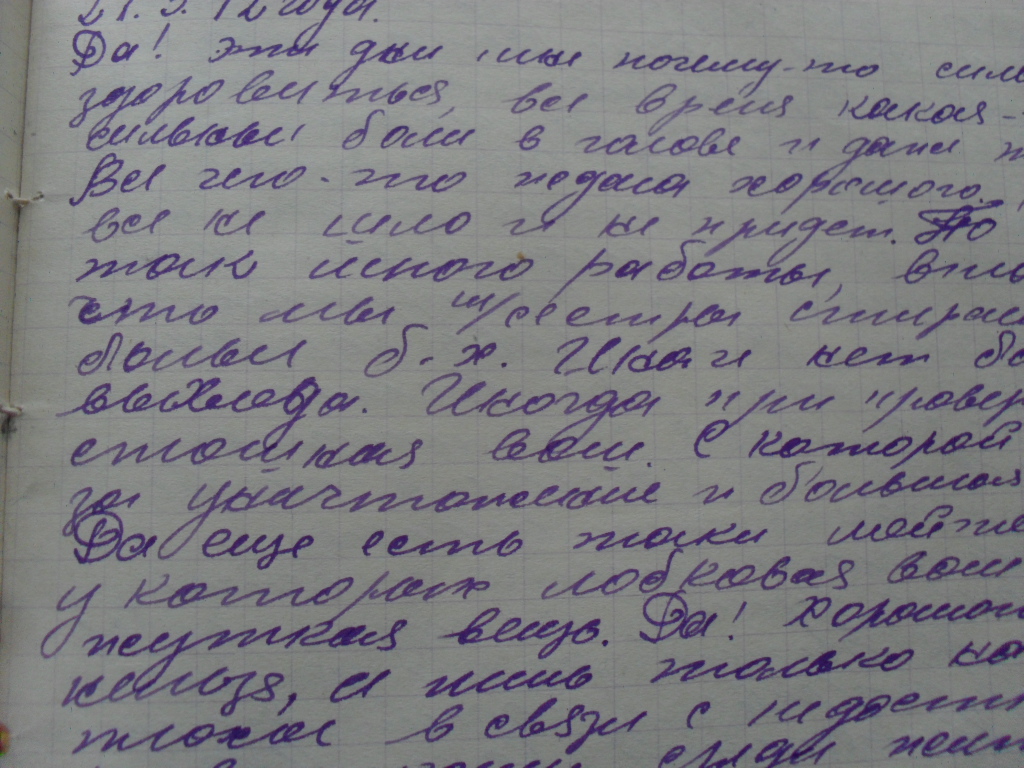 21. 3. 12 года.
Да! эти дни мне почему-то силь
здоровиться, все время какая-
сильные боли в голове и даже
Все чего-то ждала хорошого,
все не шло и не придет. По
так много работы,
что мы м/сестры стирае
больы б-х. Ино и нет
выхлода. Иногда при провер
стошная вош. С которой
за уничтожение и большая
Да еще есть таки
у которых лобковая вош
жуткая вещь. Да! Хорошо
нельзя, и лишь только на
плохое в связи с недост
среди